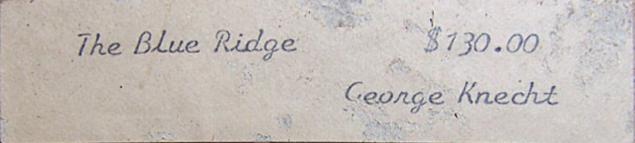 The Blue Ridge $130.00
George Knecht